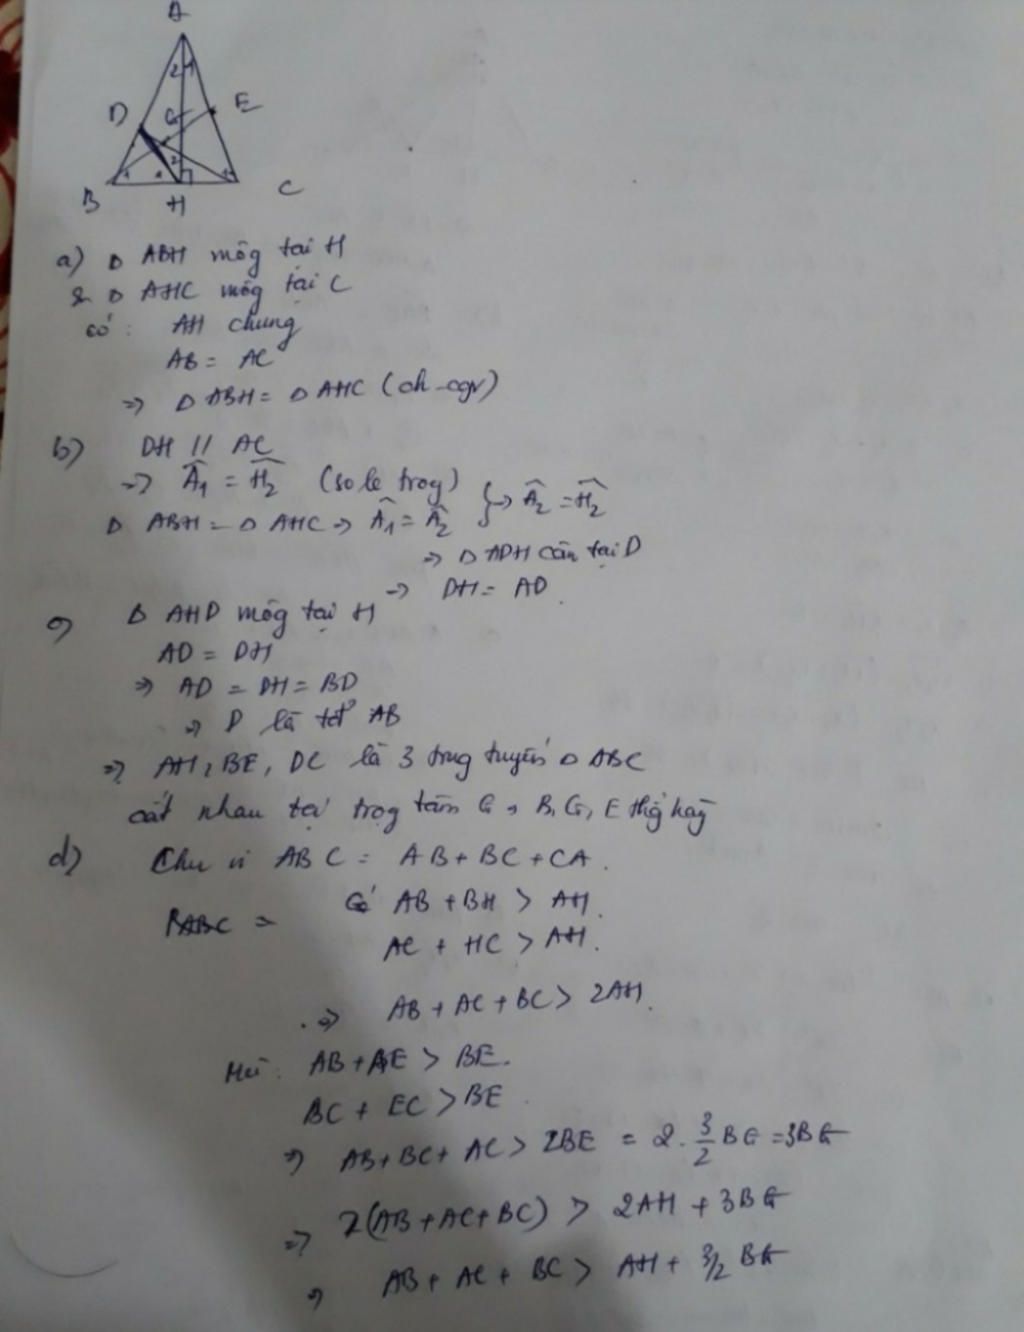 A
2 1
D
E
G
2
B
H
C
a) Δ ABH vuông tại H
& Δ AHC vuông tại C
có: AH chung
AB = AC
=> Δ ABH = Δ AHC (ch-cgv)
b) DH // AC
=> Â1 = Ĥ2 (so le trog)
Δ ABH = Δ AHC => Â1 = Â2 } => Â2 = Ĥ2
=> Δ ADH cân tại D
=> DH = AD.
c) Δ AHD vuông tại H
AD = DH
=> AD = DH = BD
=> D là tđ AB
=> AH, BE, DC là 3 trug tuyến Δ ABC
cắt nhau tại trọg tâm G, B, G, E thg hàg
d) Chu vi ABC = AB + BC + CA.
PABC = Có AB + BH > AH.
AC + HC > AH.
=> AB + AC + BC > 2AH.
AB + AE > BE.
BC + EC > BE.
=> AB + BC + AC > 2BE = 2. 3/2 BG = 3BG
=> 2(AB + AC + BC) > 2AH + 3BG
=> AB + AC + BC > AH + 3/2 BG